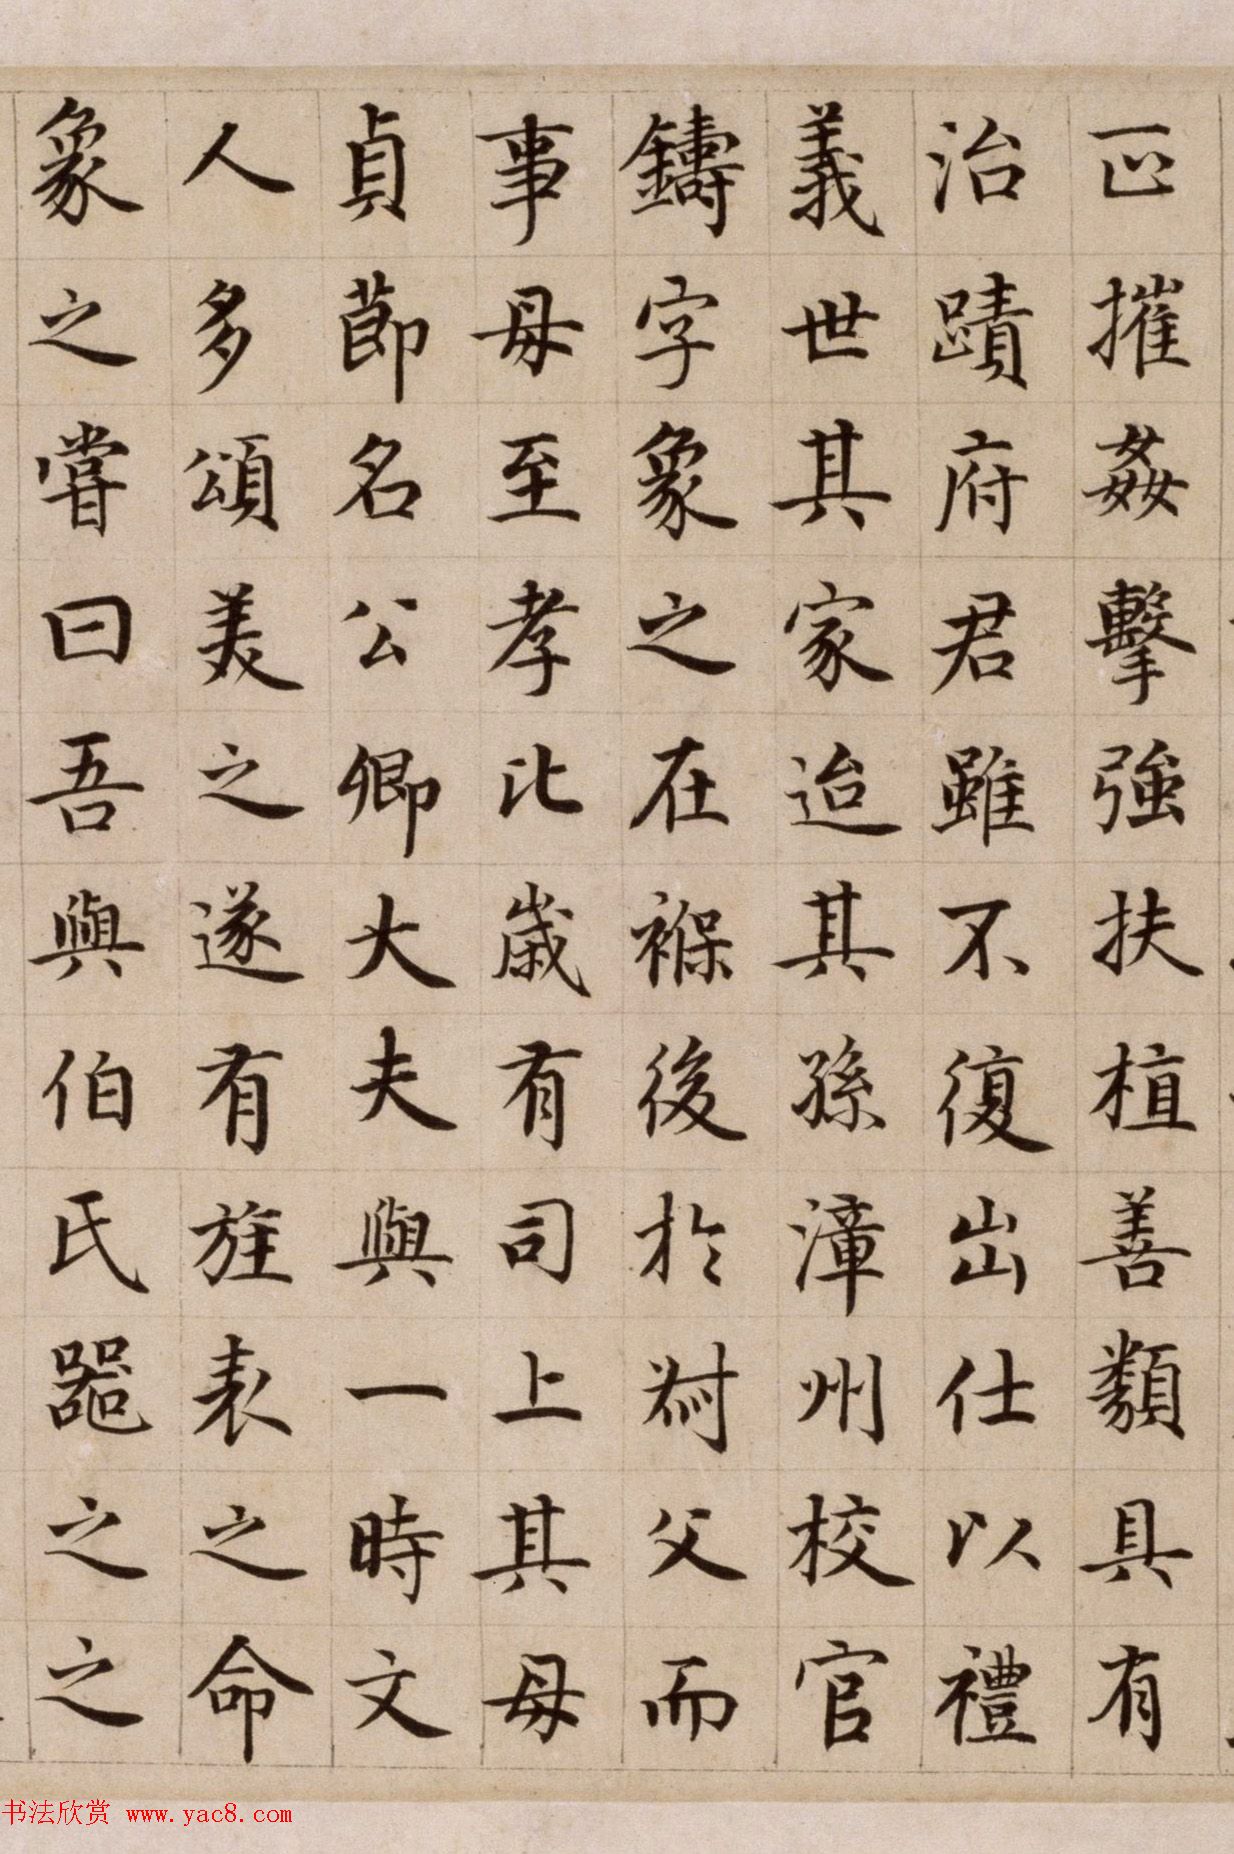 正摧姦擊強扶植善類具有
治蹟府君雖不復出仕以禮
義世其家迨其孫漳州校官
鑄字象之在褓後於尌父而
事母至孝比歲有司上其母
貞節名公卿大夫與一時文
人多頌美之遂有旌表之命
象之嘗曰吾與伯氏器之之
书法欣赏 www.yac8.com